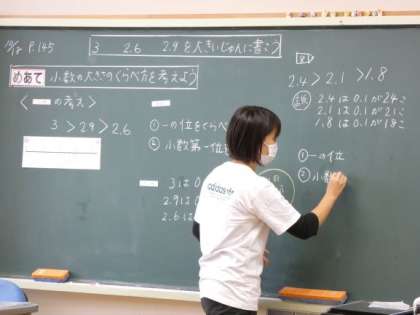 P.145
3 2.6 2.9を大きいじゅんに書こう
めあて 小数の大きさのくらべ方を考えよう
の考え>
3>2.9>2.6
①一の位をくらべ
②小数第一位を
3は0.
2.9は0.
2.6は
2.4>2.1>1.8
2.4は0.1が24こ
2.1は0.1が21こ
1.8は0.1が18こ
①一の位
②小数
adidas